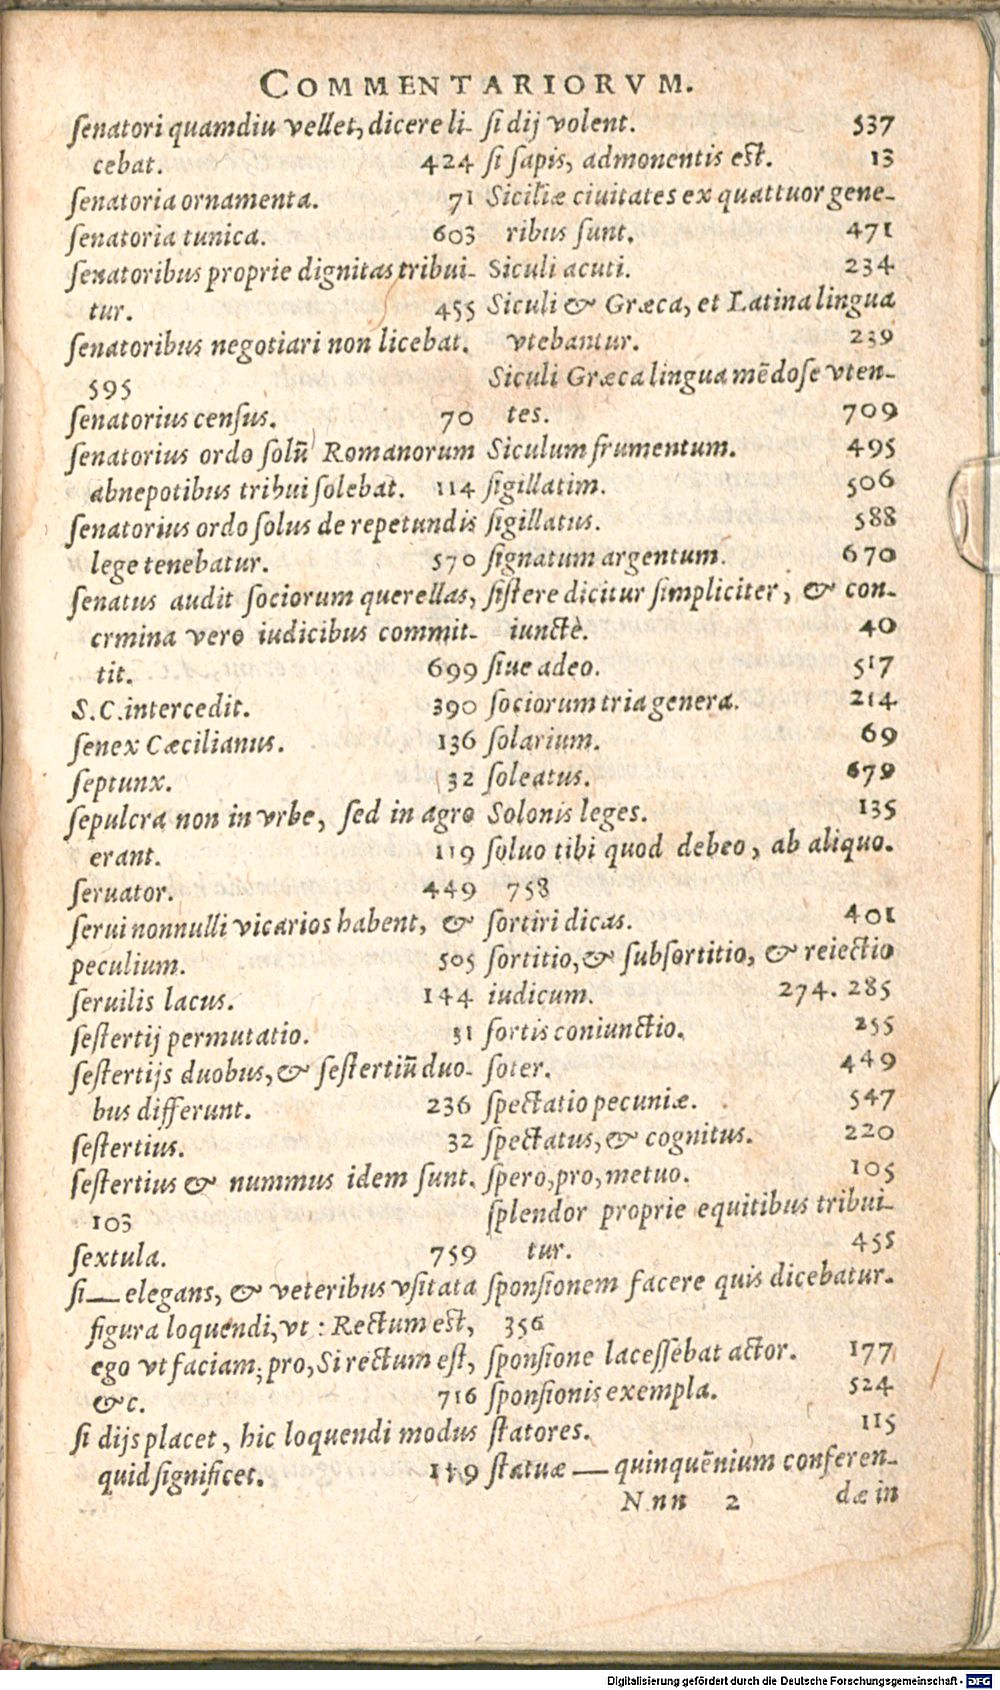 COMMENTARIORVM.
ſenatori quamdiu vellet, dicere li-
cebat. 424
ſenatoria ornamenta. 71
ſenatoria tunica. 603
ſenatoribus proprie dignitas tribui-
tur. 455
ſenatoribus negotiari non licebat.
595
ſenatorius census. 70
ſenatorius ordo ſolũ Romanorum
abnepotibus tribui ſolebat. 114
ſenatorius ordo ſolus de repetundis
lege tenebatur. 570
ſenatus audit ſociorum querellas,
crmina vero iudicibus commit-
tit. 699
S.C. intercedit. 390
ſenex Cæcilianus. 136
ſeptunx. 32
ſepulcra non in vrbe, ſed in agro
erant. 119
ſeruator. 449
ſerui nonnulli vicarios habent, &
peculium. 505
ſeruilis lacus. 144
ſeſtertij permutatio. 31
ſeſtertijs duobus, & ſeſtertiũ duo-
bus differunt. 236
ſeſtertius. 32
ſeſtertius & nummus idem ſunt.
103
ſextula. 759
ſi— elegans, & veteribus vſitata
figura loquendi, vt: Rectum est,
ego vt faciam; pro, Si rectum eſt,
&c. 716
ſi dijs placet, hic loquendi modus
quid ſignificet. 119
ſi dij volent. 537
ſi ſapis, admonentis est. 13
Siciliæ ciuitates ex quattuor gene-
ribus ſunt. 471
Siculi acuti. 234
Siculi & Græca, et Latina lingua
vtebantur. 239
Siculi Græca lingua mẽdoſe vten-
tes. 709
Siculum frumentum. 495
ſigillatim. 506
ſigillatus. 588
ſignatum argentum. 670
ſiſtere dicitur ſimpliciter, & con-
iunctè. 40
ſiue adeo. 517
ſociorum tria genera. 214
ſolarium. 69
ſoleatus. 679
Solonis leges. 135
ſoluo tibi quod debeo, ab aliquo.
758
ſortiri dicas. 401
ſortitio, & ſubſortitio, & reiectio
iudicum. 274. 285
ſortis coniunctio. 255
ſoter. 449
ſpectatio pecuniæ. 547
ſpectatus, & cognitus. 220
ſpero, pro, metuo. 105
ſplendor proprie equitibus tribui-
tur. 455
ſponſionem facere quis dicebatur.
356
ſponſione laceſſebat actor. 177
ſponſionis exempla. 524
ſtatores. 115
ſtatuæ — quinquẽnium conferen-
Nnn 2 dæ in
Digitalisierung gefördert durch die Deutsche Forschungsgemeinschaft - DFG